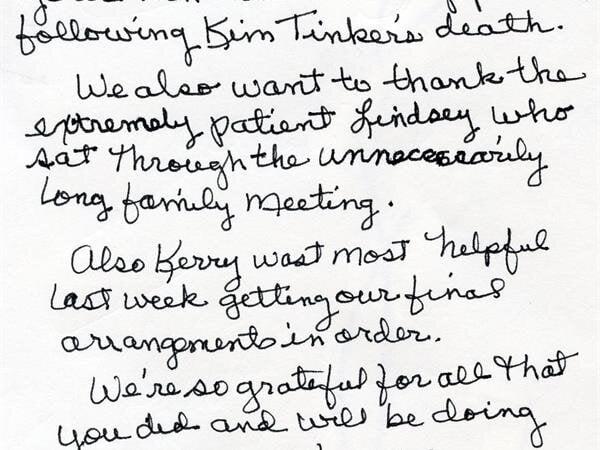 following Kim Tinker's death.
We also want to thank the
extremely patient Lindsey who
sat through the unnecessarily
long family meeting.
Also Kerry wast most helpful
last week getting our final
arrangements in order.
We're so grateful for all that
you did and will be doing